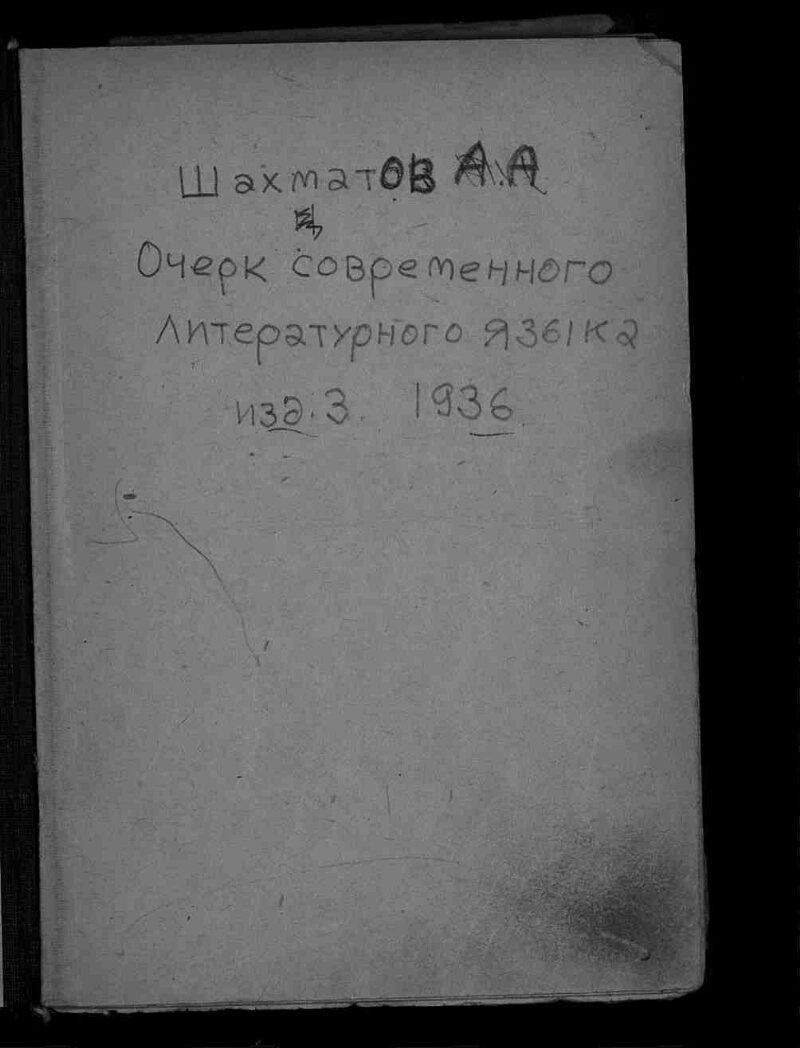 Шахматов А.А
Очерк современного
литературного языка
изд.3. 1936